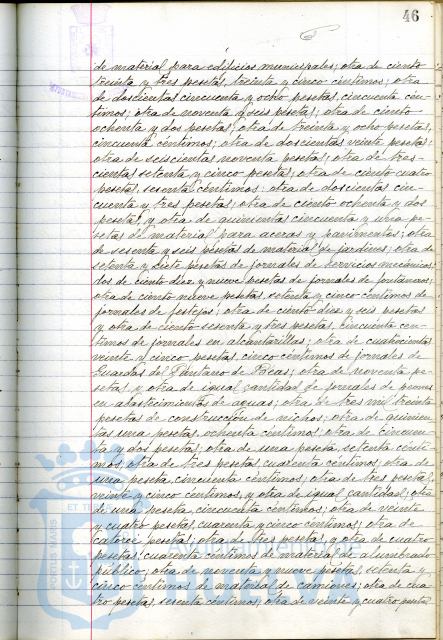 46
de material para edificios municipales; otra de ciento
treinta y tres pesetas, treinta y cinco céntimos; otra
de doscientas cincuenta y ocho pesetas, cincuenta cén-
timos; otra de noventa y seis pesetas; otra de ciento
ochenta y dos pesetas; otra de treinta y ocho pesetas,
cincuenta céntimos; otra de doscientas veinte pesetas;
otra de seiscientas noventa pesetas; otra de tres-
cientas setenta y cinco pesetas; otra de ciento cuatro
pesetas, sesenta céntimos; otra de doscientas cin-
cuenta y tres pesetas; otra de ciento ochenta y dos
pesetas y otra de quinientas cincuenta y una pe-
setas de material para aceras y pavimentos; otra
de sesenta y seis pesetas de material de jardines; otra de
setenta y siete pesetas de jornales de servicios mecánicos;
dos de ciento diez y nueve pesetas de jornales de fontaneros;
otra de ciento nueve pesetas, setenta y cinco céntimos de
jornales de festejos; otra de ciento diez y seis pesetas
y otra de ciento sesenta y tres pesetas, cincuenta cén-
timos de jornales en alcantarillas; otra de cuatrocientas
veinte y cinco pesetas, cinco céntimos de jornales de
Guardas del Pantano de Beas; otra de noventa pe-
setas y otra de igual cantidad de jornales de peones
en abastecimientos de aguas; otra de tres mil treinta
pesetas de construcción de nichos; otra de quinien-
tas una pesetas, ochenta céntimos; otra de cincuen-
ta y dos pesetas; otra de una peseta, setenta cénti-
mos; otra de tres pesetas, cuarenta céntimos; otra de
una peseta, cincuenta céntimos; otra de tres pesetas,
veinte y cinco céntimos, y otra de igual cantidad; otra
de una peseta, cincuenta céntimos; otra de veinte
y cuatro pesetas, cuarenta y cinco céntimos; otra de
catorce pesetas; otra de tres pesetas, y otra de cuatro
pesetas, cuarenta céntimos de material de alumbrado
público; otra de noventa y nueve pesetas, setenta y
cinco céntimos de material de camiones; otra de cua-
tro pesetas, sesenta céntimos; otra de veinte y cuatro pesetas
PORTUS MARIS
ET TE
HUELVA